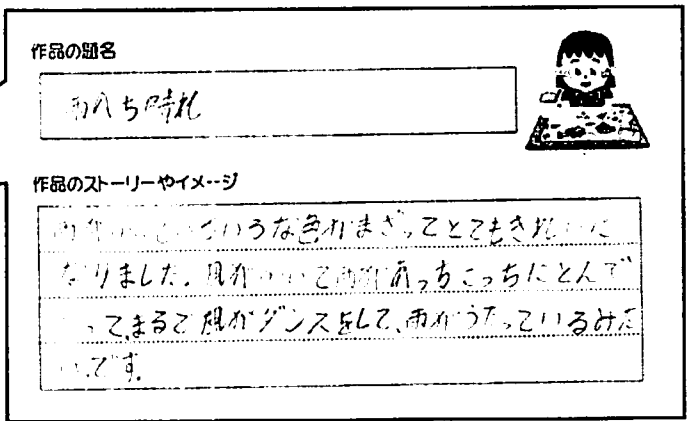 作品の題名
雨のち晴れ
作品のストーリーやイメージ
いろいろな色がまざってとてもきれいに
なりました。風がふいて雨があっちこっちにとんで
って、まるで風がダンスをして、雨がうたっているみた
いです。